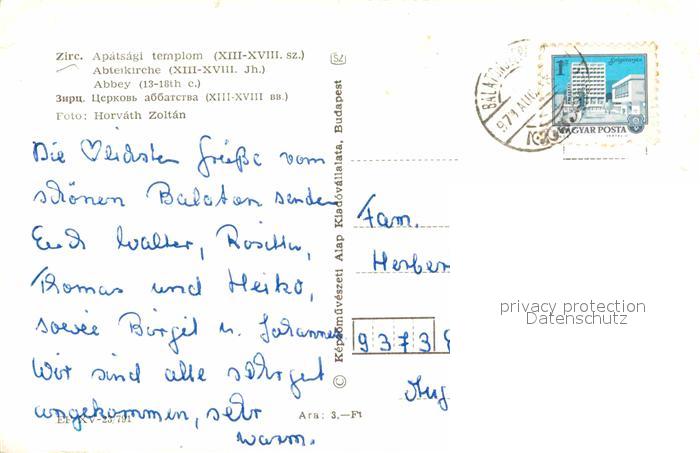 Zirc. Apátsági templom (XIII-XVIII. sz.)
Abteikirche (XIII-XVIII. Jh.)
Abbey (13-18th c.)
Зирц. Церковь аббатства (XIII-XVIII вв.)
Foto: Horváth Zoltán
Die ♡lichsten Grüße vom
schönen Balaton senden
Euch Walter, Rositta,
Thomas und Heiko,
sowie Birgit u. Johannes.
Wir sind alle sehr gut
angekommen, sehr
warm.
Ara: 3,—Ft
© Képzőművészeti Alap Kiadóvállalata, Budapest
SZ
1
MAGYAR POSTA
Fam.
Herber
9373
privacy protection
Datenschutz